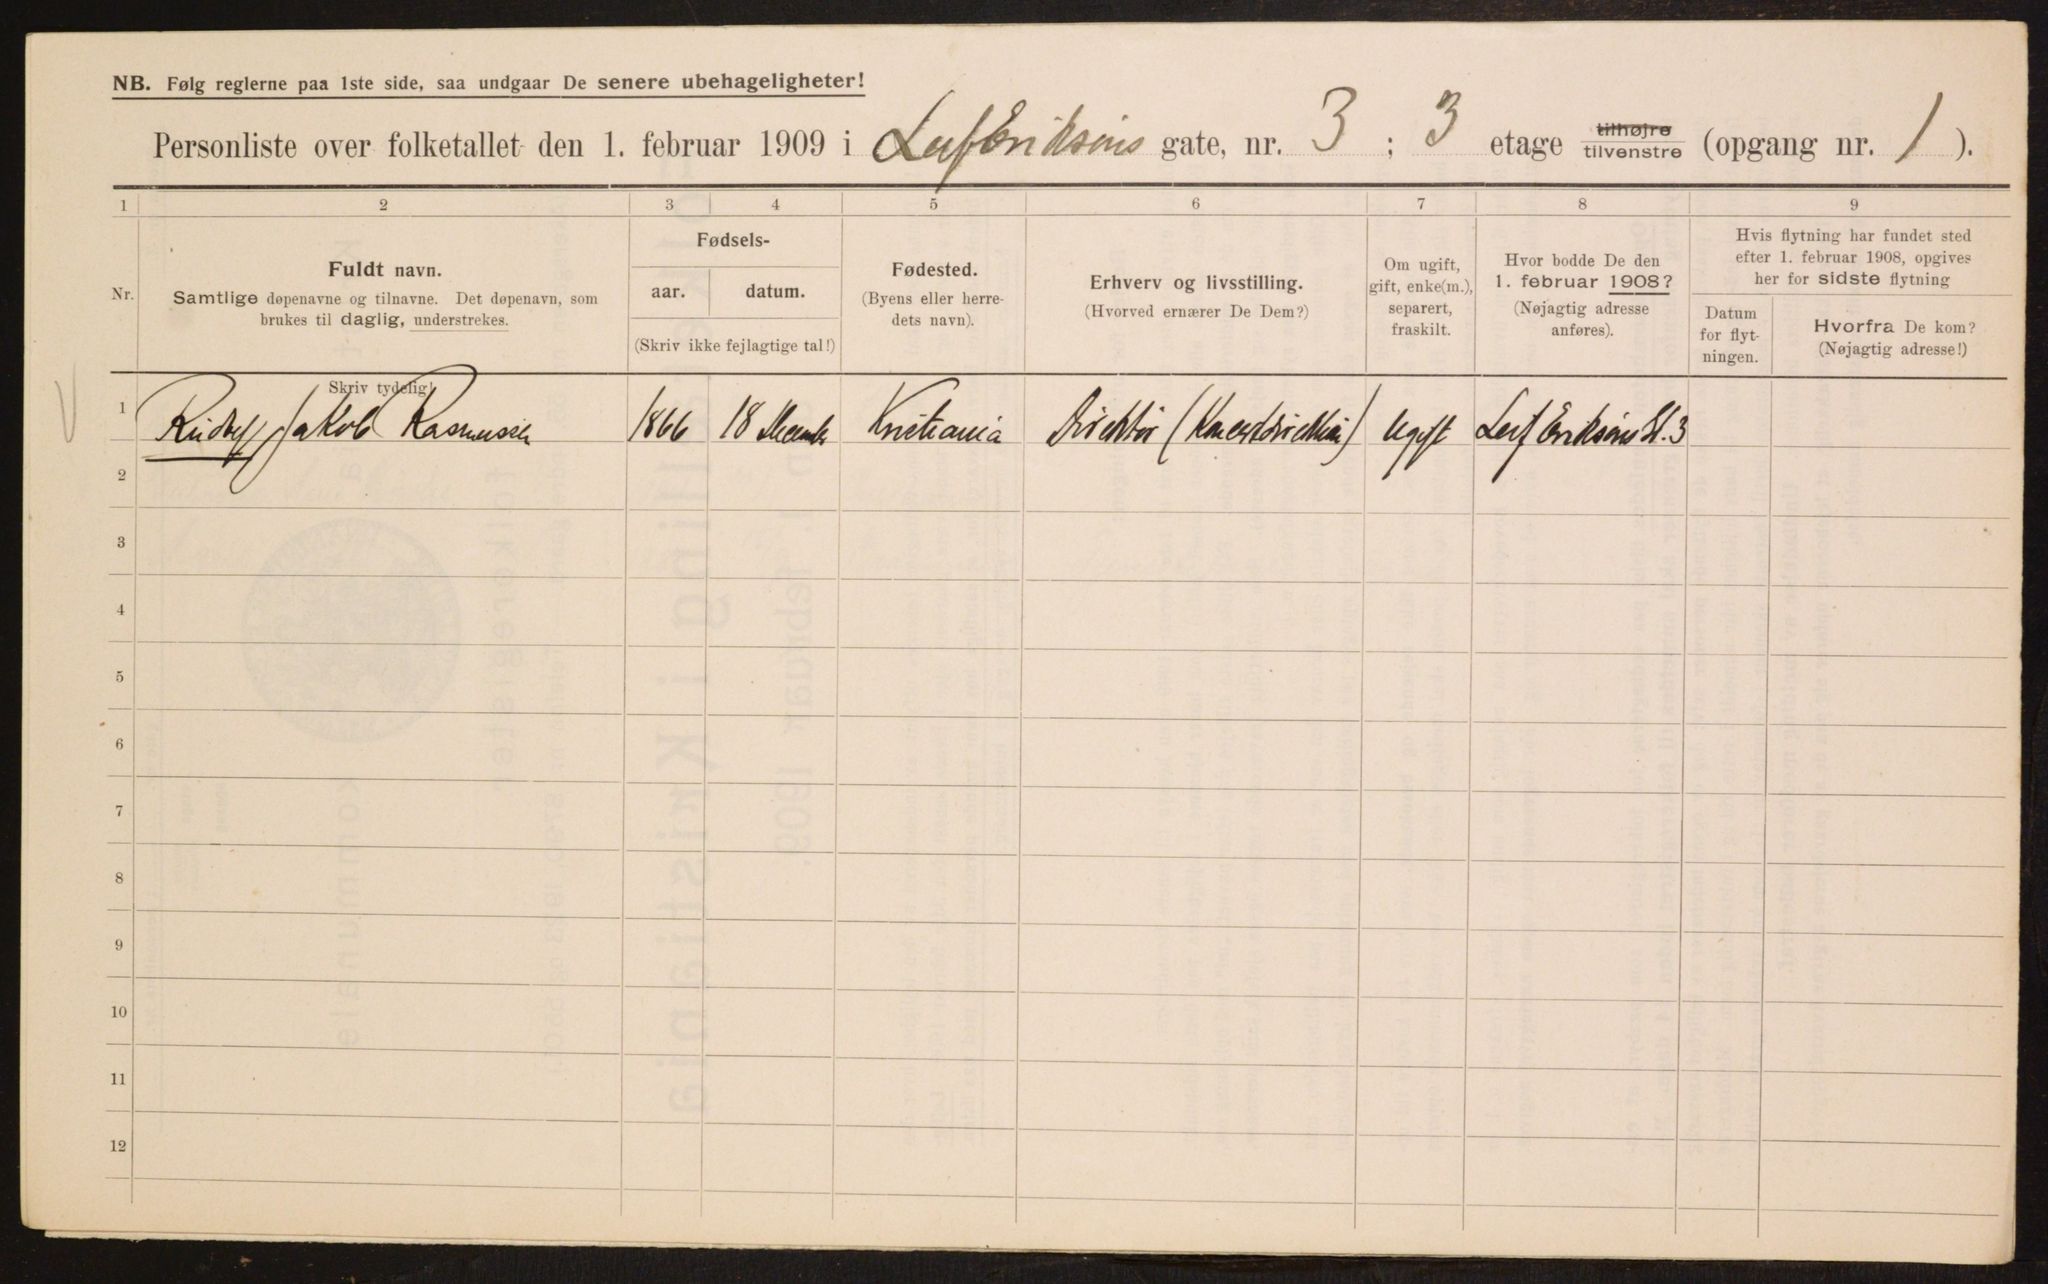 NB. Følg reglerne paa 1ste side, saa undgaar De senere ubehageligheter!
Personliste over folketallet den 1. februar 1909 i Leif Eriksøns gate, nr. 3 ; 3 etage tilhøjre tilvenstre (opgang nr. 1 ).
1 2 3 4 5 6 7 8 9
Nr.
Fuldt navn.
Samtlige døpenavne og tilnavne. Det døpenavn, som
brukes til daglig, understrekes.
Fødsels-
aar. datum.
(Skriv ikke fejlagtige tal!)
Fødested.
(Byens eller herre-
dets navn).
Erhverv og livsstilling.
(Hvorved ernærer De Dem?)
Om ugift,
gift, enke(m.),
separert,
fraskilt.
Hvor bodde De den
1. februar 1908?
(Nøjagtig adresse
anføres).
Hvis flytning har fundet sted
efter 1. februar 1908, opgives
her for sidste flytning
Datum
for flyt-
ningen.
Hvorfra De kom?
(Nøjagtig adresse!)
Skriv tydelig!
1 Rudolf Jakob Rasmussen 1866 18 December Kristiania Direktør (Koncertdirektion) Ugift Leif Eriksøns Gt. 3
2
3
4
5
6
7
8
9
10
11
12